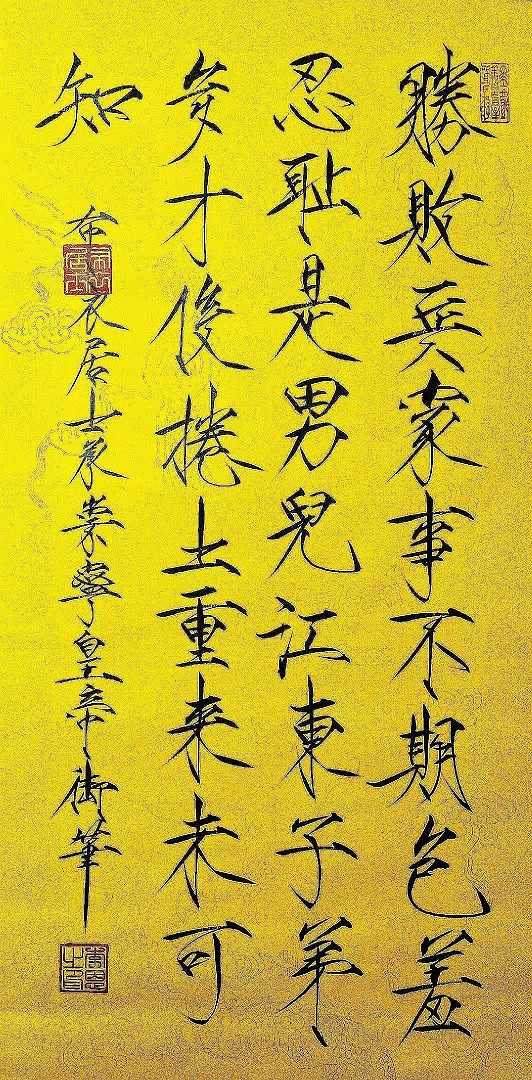 勝敗兵家事不期包羞
忍耻是男兒江東子弟
多才俊捲土重來未可
知
布衣居士承崇寧皇帝御筆